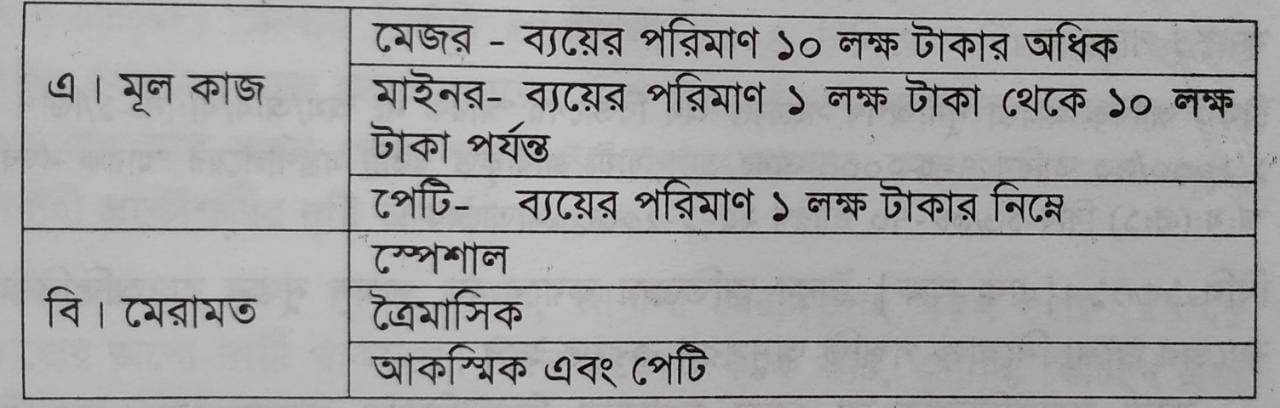 মেজর - ব্যয়ের পরিমাণ ১০ লক্ষ টাকার অধিক
এ। মূল কাজ
মাইনর- ব্যয়ের পরিমাণ ১ লক্ষ টাকা থেকে ১০ লক্ষ
টাকা পর্যন্ত
পেটি- ব্যয়ের পরিমাণ ১ লক্ষ টাকার নিম্নে
স্পেশাল
বি। মেরামত
ত্রৈমাসিক
আকস্মিক এবং পেটি